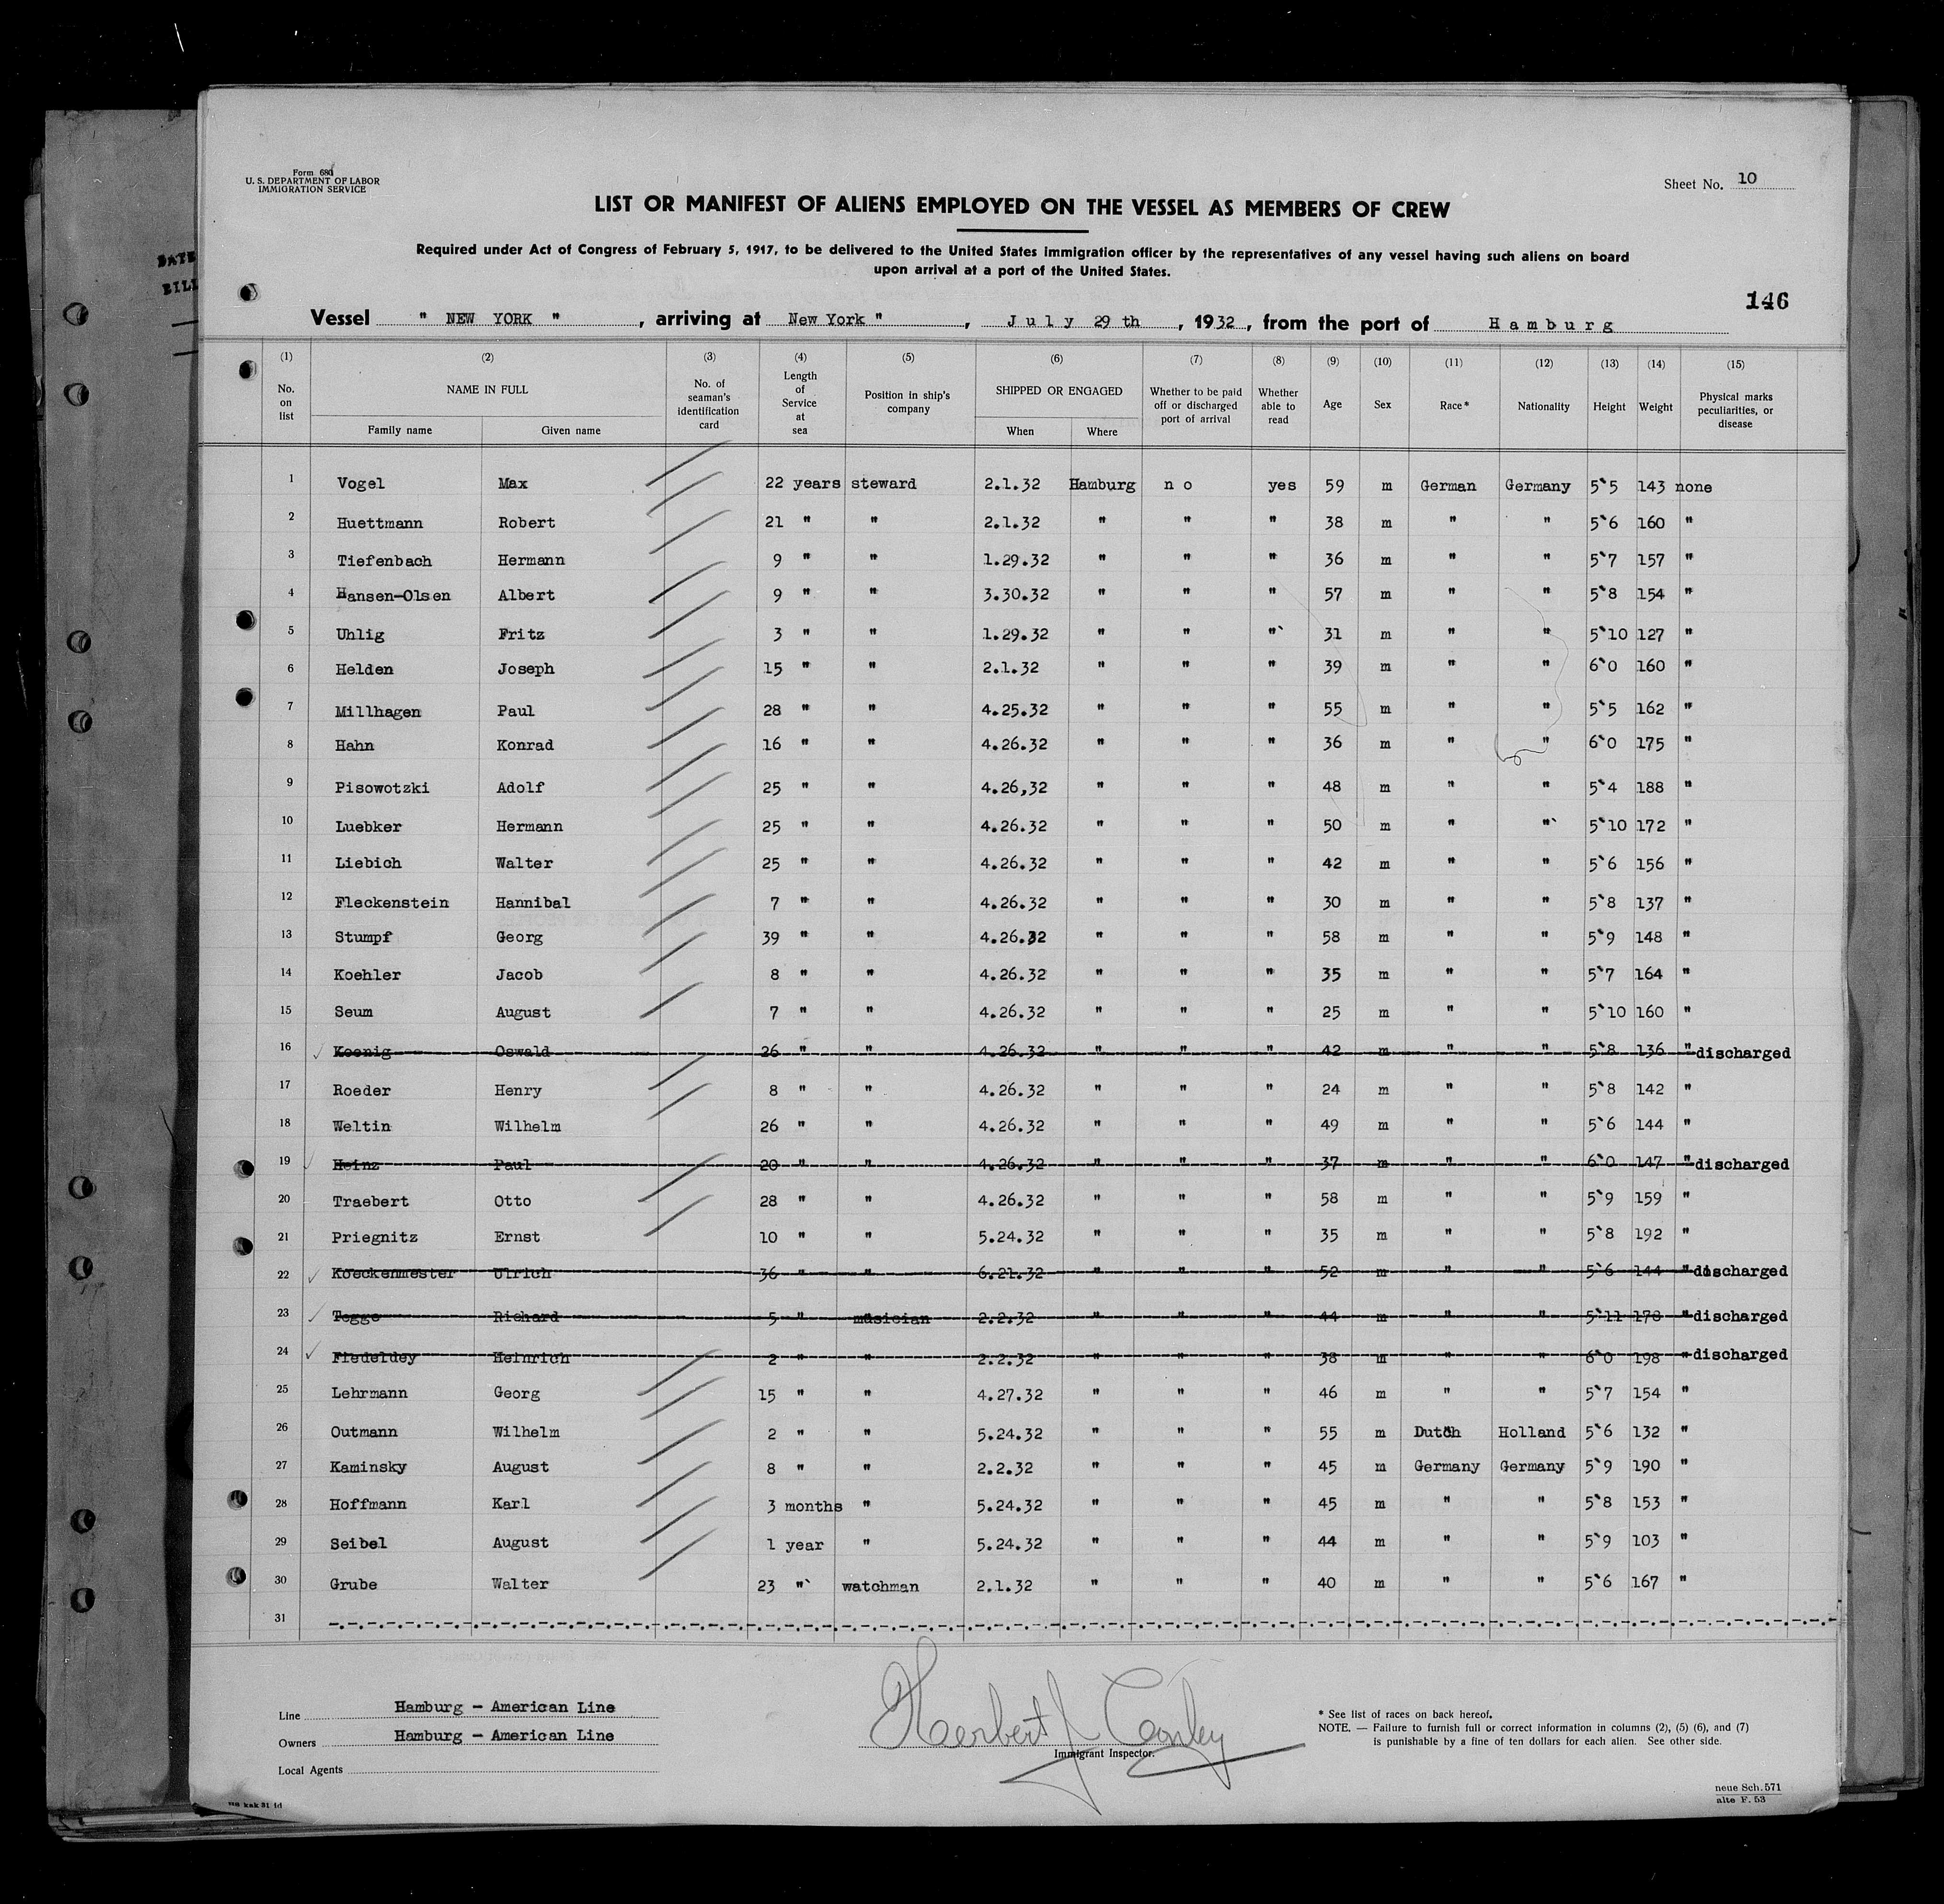 Form 680
U. S. DEPARTMENT OF LABOR
IMMIGRATION SERVICE
Sheet No. 10
LIST OR MANIFEST OF ALIENS EMPLOYED ON THE VESSEL AS MEMBERS OF CREW
Required under Act of Congress of February 5, 1917, to be delivered to the United States immigration officer by the representatives of any vessel having such aliens on board
upon arrival at a port of the United States.
146
Vessel " NEW YORK " , arriving at New York " , July 29 th , 1932 , from the port of Hamburg
(1) (2) (3) (4) (5) (6) (7) (8) (9) (10) (11) (12) (13) (14) (15)
No. on list NAME IN FULL Family name Given name No. of seaman's identification card Length of Service at sea Position in ship's company SHIPPED OR ENGAGED When Where Whether to be paid off or discharged port of arrival Whether able to read Age Sex Race* Nationality Height Weight Physical marks peculiarities, or disease
1 Vogel Max 22 years steward 2.1.32 Hamburg n o yes 59 m German Germany 5'5 143 none
2 Huettmann Robert 21 " " 2.1.32 " " " 38 m " " 5'6 160 "
3 Tiefenbach Hermann 9 " " 1.29.32 " " " 36 m " " 5'7 157 "
4 Hansen-Olsen Albert 9 " " 3.30.32 " " " 57 m " " 5'8 154 "
5 Uhlig Fritz 3 " " 1.29.32 " " " 31 m " " 5'10 127 "
6 Helden Joseph 15 " " 2.1.32 " " " 39 m " " 6'0 160 "
7 Millhagen Paul 28 " " 4.25.32 " " " 55 m " " 5'5 162 "
8 Hahn Konrad 16 " " 4.26.32 " " " 36 m " " 6'0 175 "
9 Pisowotzki Adolf 25 " " 4.26,32 " " " 48 m " " 5'4 188 "
10 Luebker Hermann 25 " " 4.26.32 " " " 50 m " " 5'10 172 "
11 Liebich Walter 25 " " 4.26.32 " " " 42 m " " 5'6 156 "
12 Fleckenstein Hannibal 7 " " 4.26.32 " " " 30 m " " 5'8 137 "
13 Stumpf Georg 39 " " 4.26.32 " " " 58 m " " 5'9 148 "
14 Koehler Jacob 8 " " 4.26.32 " " " 35 m " " 5'7 164 "
15 Seum August 7 " " 4.26.32 " " " 25 m " " 5'10 160 "
16 Koenig Oswald 26 " " 4.26.32 " " " 42 m " " 5'8 136 " discharged
17 Roeder Henry 8 " " 4.26.32 " " " 24 m " " 5'8 142 "
18 Weltin Wilhelm 26 " " 4.26.32 " " " 49 m " " 5'6 144 "
19 Heinz Paul 20 " " 4.26.32 " " " 37 m " " 6'0 147 " discharged
20 Traebert Otto 28 " " 4.26.32 " " " 58 m " " 5'9 159 "
21 Priegnitz Ernst 10 " " 5.24.32 " " " 35 m " " 5'8 192 "
22 Koeckenmester Ulrich 36 " " 6.21.32 " " " 52 m " " 5'6 144 " discharged
23 Togge Richard 5 " musician 2.2.32 " " " 44 m " " 5'11 178 " discharged
24 Fiedeldey Heinrich 2 " " 2.2.32 " " " 38 m " " 6'0 198 " discharged
25 Lehrmann Georg 15 " " 4.27.32 " " " 46 m " " 5'7 154 "
26 Outmann Wilhelm 2 " " 5.24.32 " " " 55 m Dutch Holland 5'6 132 "
27 Kaminsky August 8 " " 2.2.32 " " " 45 m Germany Germany 5'9 190 "
28 Hoffmann Karl 3 months " 5.24.32 " " " 45 m " " 5'8 153 "
29 Seibel August 1 year " 5.24.32 " " " 44 m " " 5'9 103 "
30 Grube Walter 23 " watchman 2.1.32 " " " 40 m " " 5'6 167 "
31
Line Hamburg - American Line
Owners Hamburg - American Line
Local Agents
Herbert J Conley
Immigrant Inspector.
* See list of races on back hereof.
NOTE. — Failure to furnish full or correct information in columns (2), (5) (6), and (7)
is punishable by a fine of ten dollars for each alien. See other side.
neue Sch. 571
alte F. 53